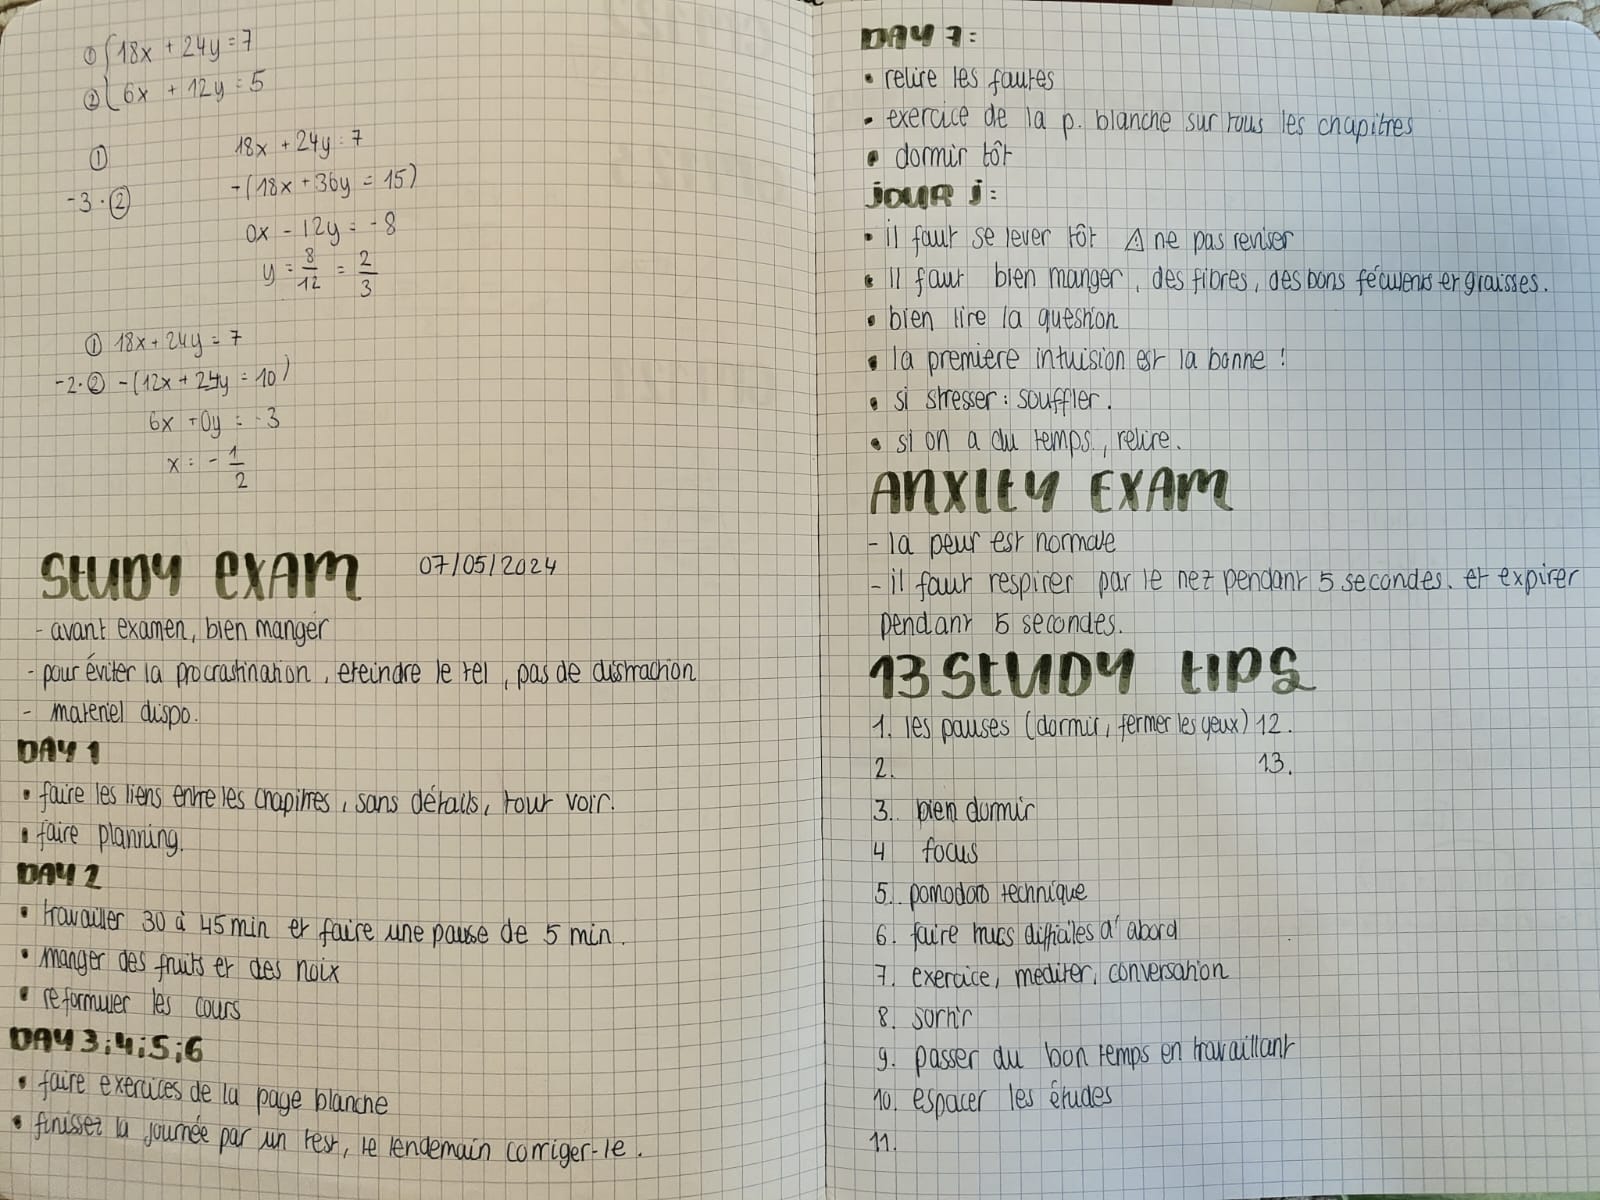 ① { 18x + 24y = 7
② { 6x + 12y = 5
① 18x + 24y = 7
-3·② -(18x + 36y = 15)
0x - 12y = -8
y = 8/12 = 2/3
① 18x + 24y = 7
-2·② -(12x + 24y = 10)
6x + 0y = -3
x = - 1/2
STUDY EXAM 07/05/2024
- avant examen, bien manger
- pour éviter la procrastination, eteindre le tel, pas de distraction
- materiel dispo.
DAY 1
• faire les liens entre les chapitres, sans détails, tout voir.
• faire planning.
DAY 2
• travailler 30 à 45 min et faire une pause de 5 min.
• manger des fruits et des noix
• reformuler les cours
DAY 3;4;5;6
• faire exercices de la page blanche
• finissez la journée par un test, le lendemain corriger-le.
DAY 7:
• relire les fautes
• exercice de la p. blanche sur tous les chapitres
• dormir tôt
JOUR J:
• il faut se lever tôt ⚠ ne pas reviser
• Il faut bien manger, des fibres, des bons féculents et graisses.
• bien lire la question
• la premiere intuision est la bonne !
• si stresser : souffler.
• si on a du temps, relire.
ANXITY EXAM
- la peur est normale
- il faut respirer par le nez pendant 5 secondes. et expirer
pendant 5 secondes.
13 STUDY TIPS
1. les pauses (dormir, fermer les yeux) 12.
2. 13.
3. bien dormir
4 focus
5. pomodoro technique
6. faire trucs difficiles d'abord
7. exercice, mediter, conversation
8. sortir
9. passer du bon temps en travaillant
10. espacer les études
11.